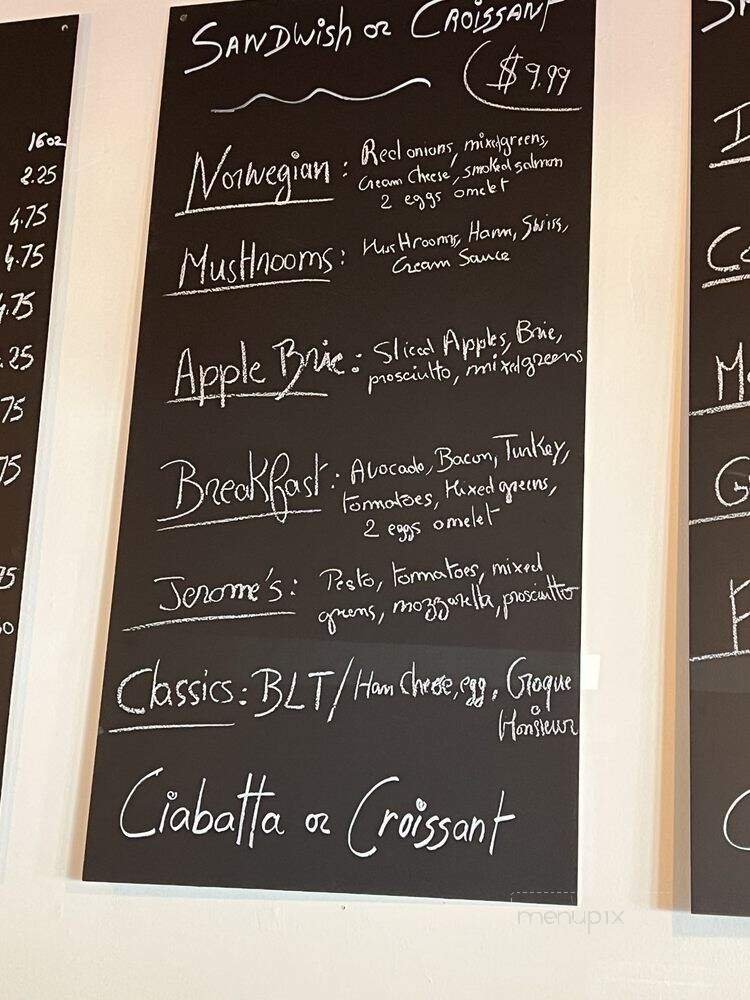 SANDWish or CROISSANT
$9.99
Norwegian : Red onions, mixedgreens,
Cream Cheese, smoked salmon
2 eggs omelet
MusHrooms : MusHrooms, Ham, Swiss,
Cream Sauce
Apple Brie : Sliced Apples, Brie,
prosciutto, mixedgreens
Breakfast : Avocado, Bacon, Turkey,
tomatoes, Mixed greens,
2 eggs omelet
Jerome's : Pesto, tomatoes, mixed
greens, mozzarella, prosciutto
Classics : BLT / Ham Cheese, egg, Croque
Monsieur
Ciabatta or Croissant
16oz
2.25
4.75
4.75
4.75
.25
75
75
75
menupix